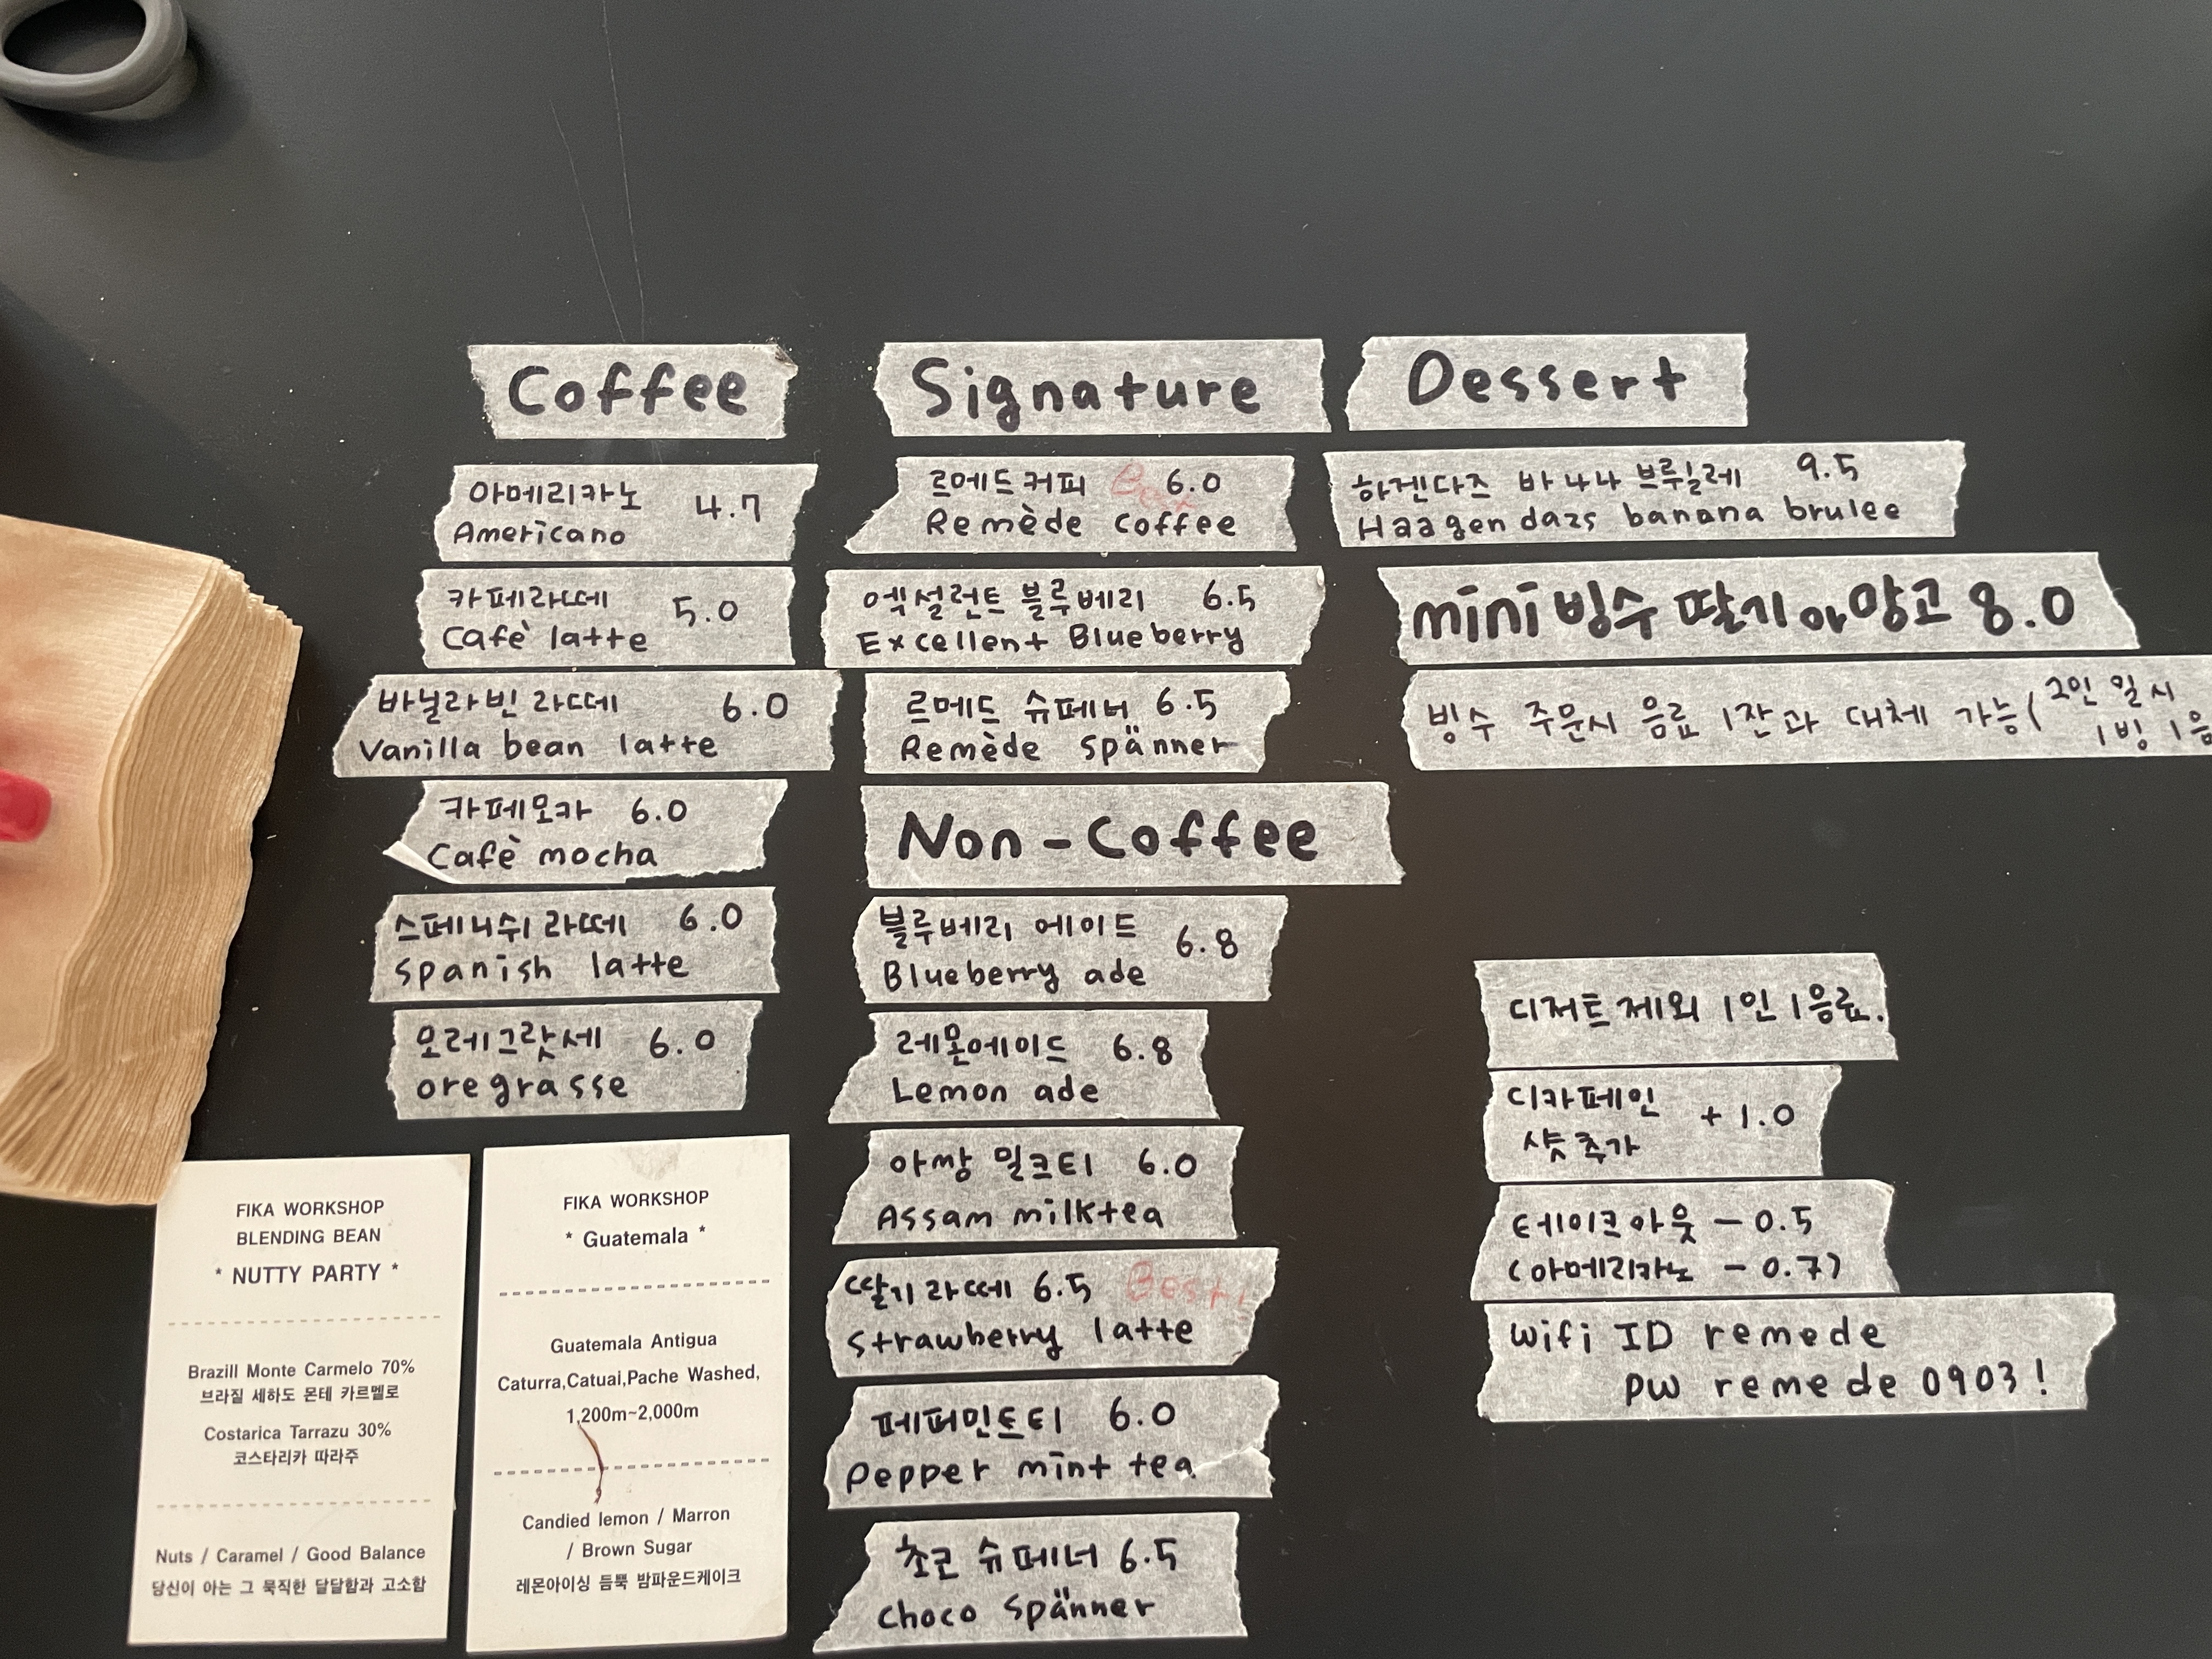 Coffee
아메리카노 4.7
Americano
카페라떼 5.0
Cafè latte
바닐라빈 라떼 6.0
Vanilla bean latte
카페모카 6.0
Cafè mocha
스페니쉬 라떼 6.0
spanish latte
오레그랏세 6.0
oregrasse
FIKA WORKSHOP
BLENDING BEAN
* NUTTY PARTY *
Brazill Monte Carmelo 70%
브라질 세하도 몬테 카르멜로
Costarica Tarrazu 30%
코스타리카 따라주
Nuts / Caramel / Good Balance
당신이 아는 그 묵직한 달달함과 고소함
FIKA WORKSHOP
* Guatemala *
Guatemala Antigua
Caturra,Catuai,Pache Washed,
1,200m~2,000m
Candied lemon / Marron
/ Brown Sugar
레몬아이싱 듬뿍 밤파운드케이크
Signature
르메드커피 Best 6.0
Remède coffee
엑설런트 블루베리 6.5
Excellent Blueberry
르메드 슈페너 6.5
Remède spänner
Non-Coffee
블루베리 에이드 6.8
Blueberry ade
레몬에이드 6.8
Lemon ade
아쌍 밀크티 6.0
Assam milktea
딸기라떼 6.5 Best!
strawberry latte
페퍼민트티 6.0
pepper mint tea
초코 슈페너 6.5
choco spänner
Dessert
하겐다즈 바나나 브루릴레 9.5
Haagen dazs banana brulee
mini 빙수 딸기 or 망고 8.0
빙수 주문시 음료 1잔과 대체 가능(2인 일시
1빙 1음
디저트 제외 1인 1음료.
디카페인 +1.0
샷추가
테이크아웃 -0.5
(아메리카노 -0.7)
Wifi ID remede
PW remede 0903!